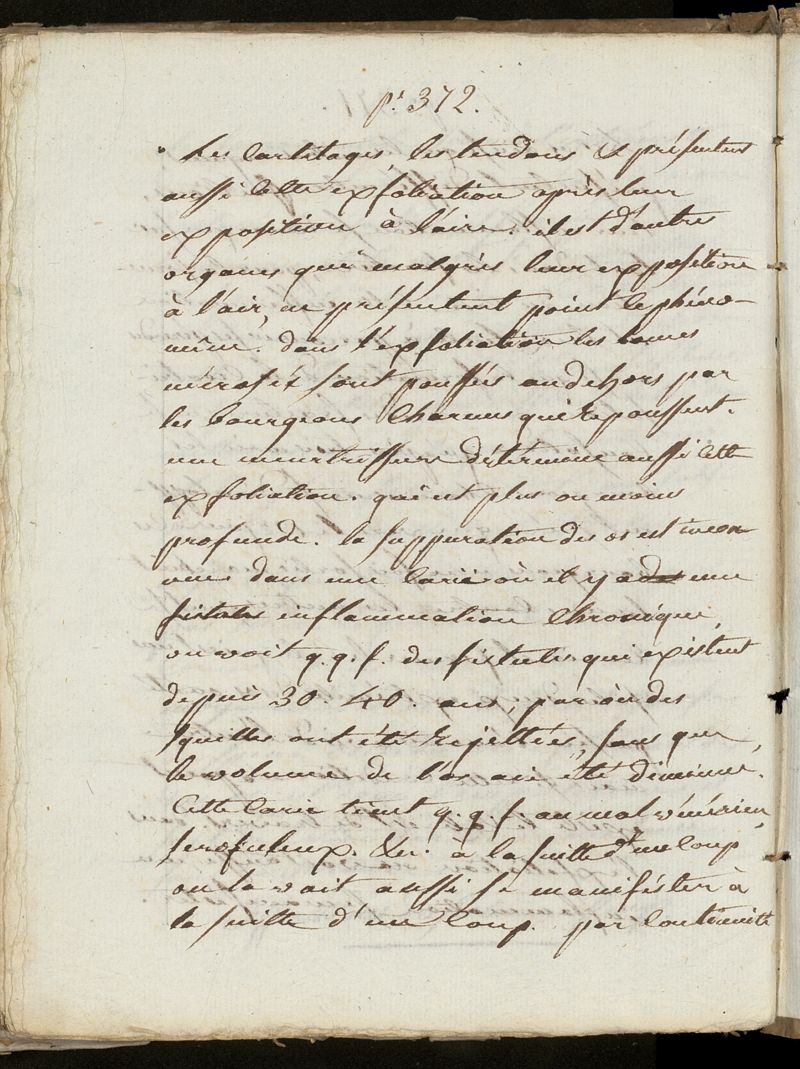 p.t 372.
Les Cartilages, les tendons &c présentent
aussi cette exfoliation après leur
exposition à l'air. il est d'autres
organes qui malgrés leur exposition
à l'air, ne présentent point le phéno-
mène. dans l'exfoliation les lames
nécrosés sont poussés au dehors par
les bourgeons Charnus qui repoussent.
une meurtrissure détermine aussi Cette
exfoliation. qui est plus ou moins
profonde. la suppuration des os est incon-
nue dans une Carie où il y a des une
fistules inflammation Chronique,
on voit q.q.f. des fistules qui existent
depuis 30. 40. ans, par où des
squilles ont été rejettées, sans que
le volume de l'os aie été diminué.
Cette Carie tient q.q.f. au mal vénérien,
scrofuleux. &c. à la suitte d'un Coup
on la voit aussi se manifester à
la suitte d'un Coup. par Continuité